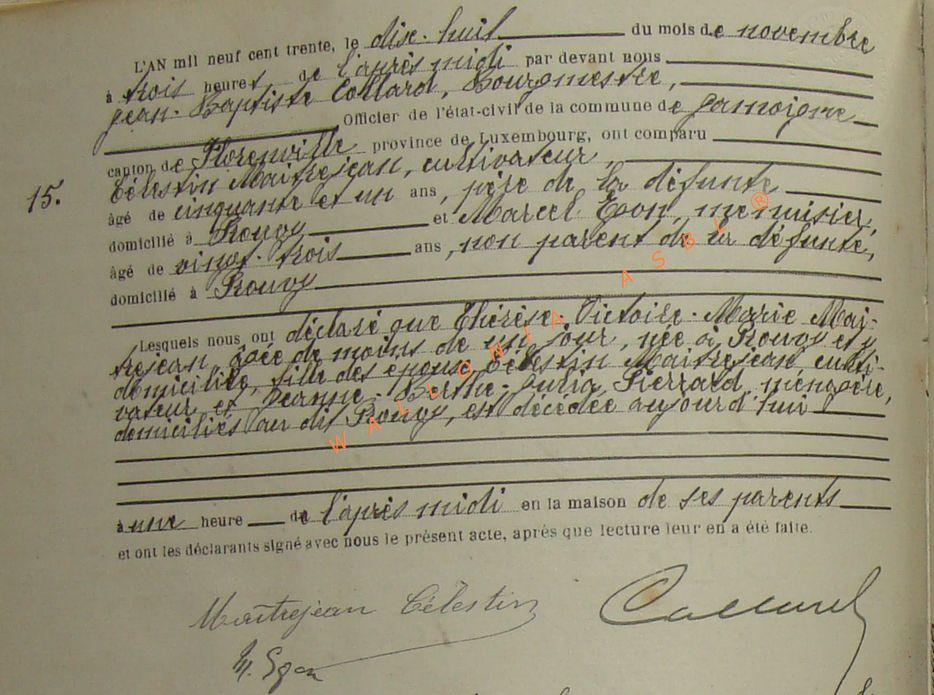 L'AN mil neuf cent trente, le dix-huit du mois de novembre
à trois heures de l'après midi par devant nous
Jean-Baptiste Collard, Bourgmestre,
Officier de l'état-civil de la commune de Jamoigne
canton de Florenville province de Luxembourg, ont comparu
15. Célestin Maitrejean, cultivateur,
âgé de cinquante et un ans, père de la défunte
domicilié à Prouvy et Marcel Egon, menuisier,
âgé de vingt-trois ans, non parent de la défunte,
domicilié à Prouvy
Lesquels nous ont déclaré que Thérèse-Victoire-Marie Mai-
trejean âgée de moins de un jour, née à Prouvy et y
domiciliée, fille des époux Célestin Maitrejean culti-
vateur, et Jeanne-Berthe-Julia Pierrard, ménagère,
domiciliés au dit Prouvy, est décédée aujourd'hui
à une heure de l'après midi en la maison de ses parents
et ont les déclarants signé avec nous le présent acte, après que lecture leur en a été faite.
Maîtrejean Célestin Collard
M. Egon
WALLONIA ASBL ®